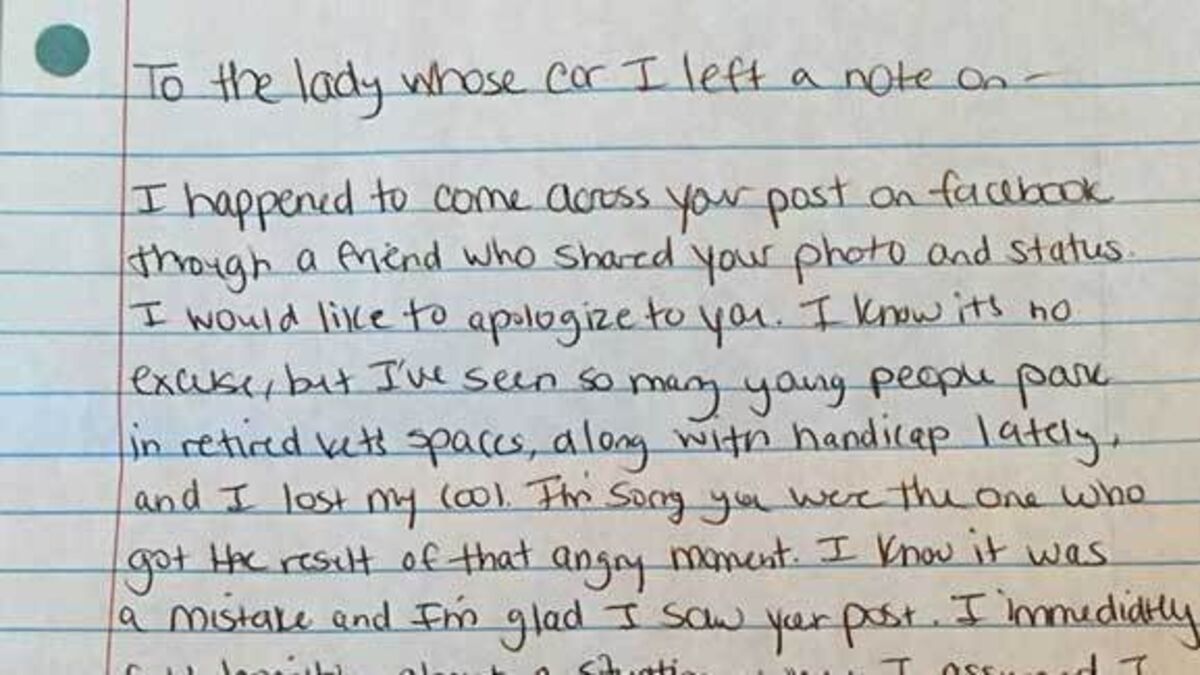 To the lady whose car I left a note on -
I happened to come across your post on facebook
through a friend who shared your photo and status.
I would like to apologize to you. I know it's no
excuse, but I've seen so many young people park
in retired vets spaces, along with handicap lately,
and I lost my cool. I'm sorry you were the one who
got the result of that angry moment. I know it was
a mistake and I'm glad I saw your post. I immediatly
about a situation I assumed I